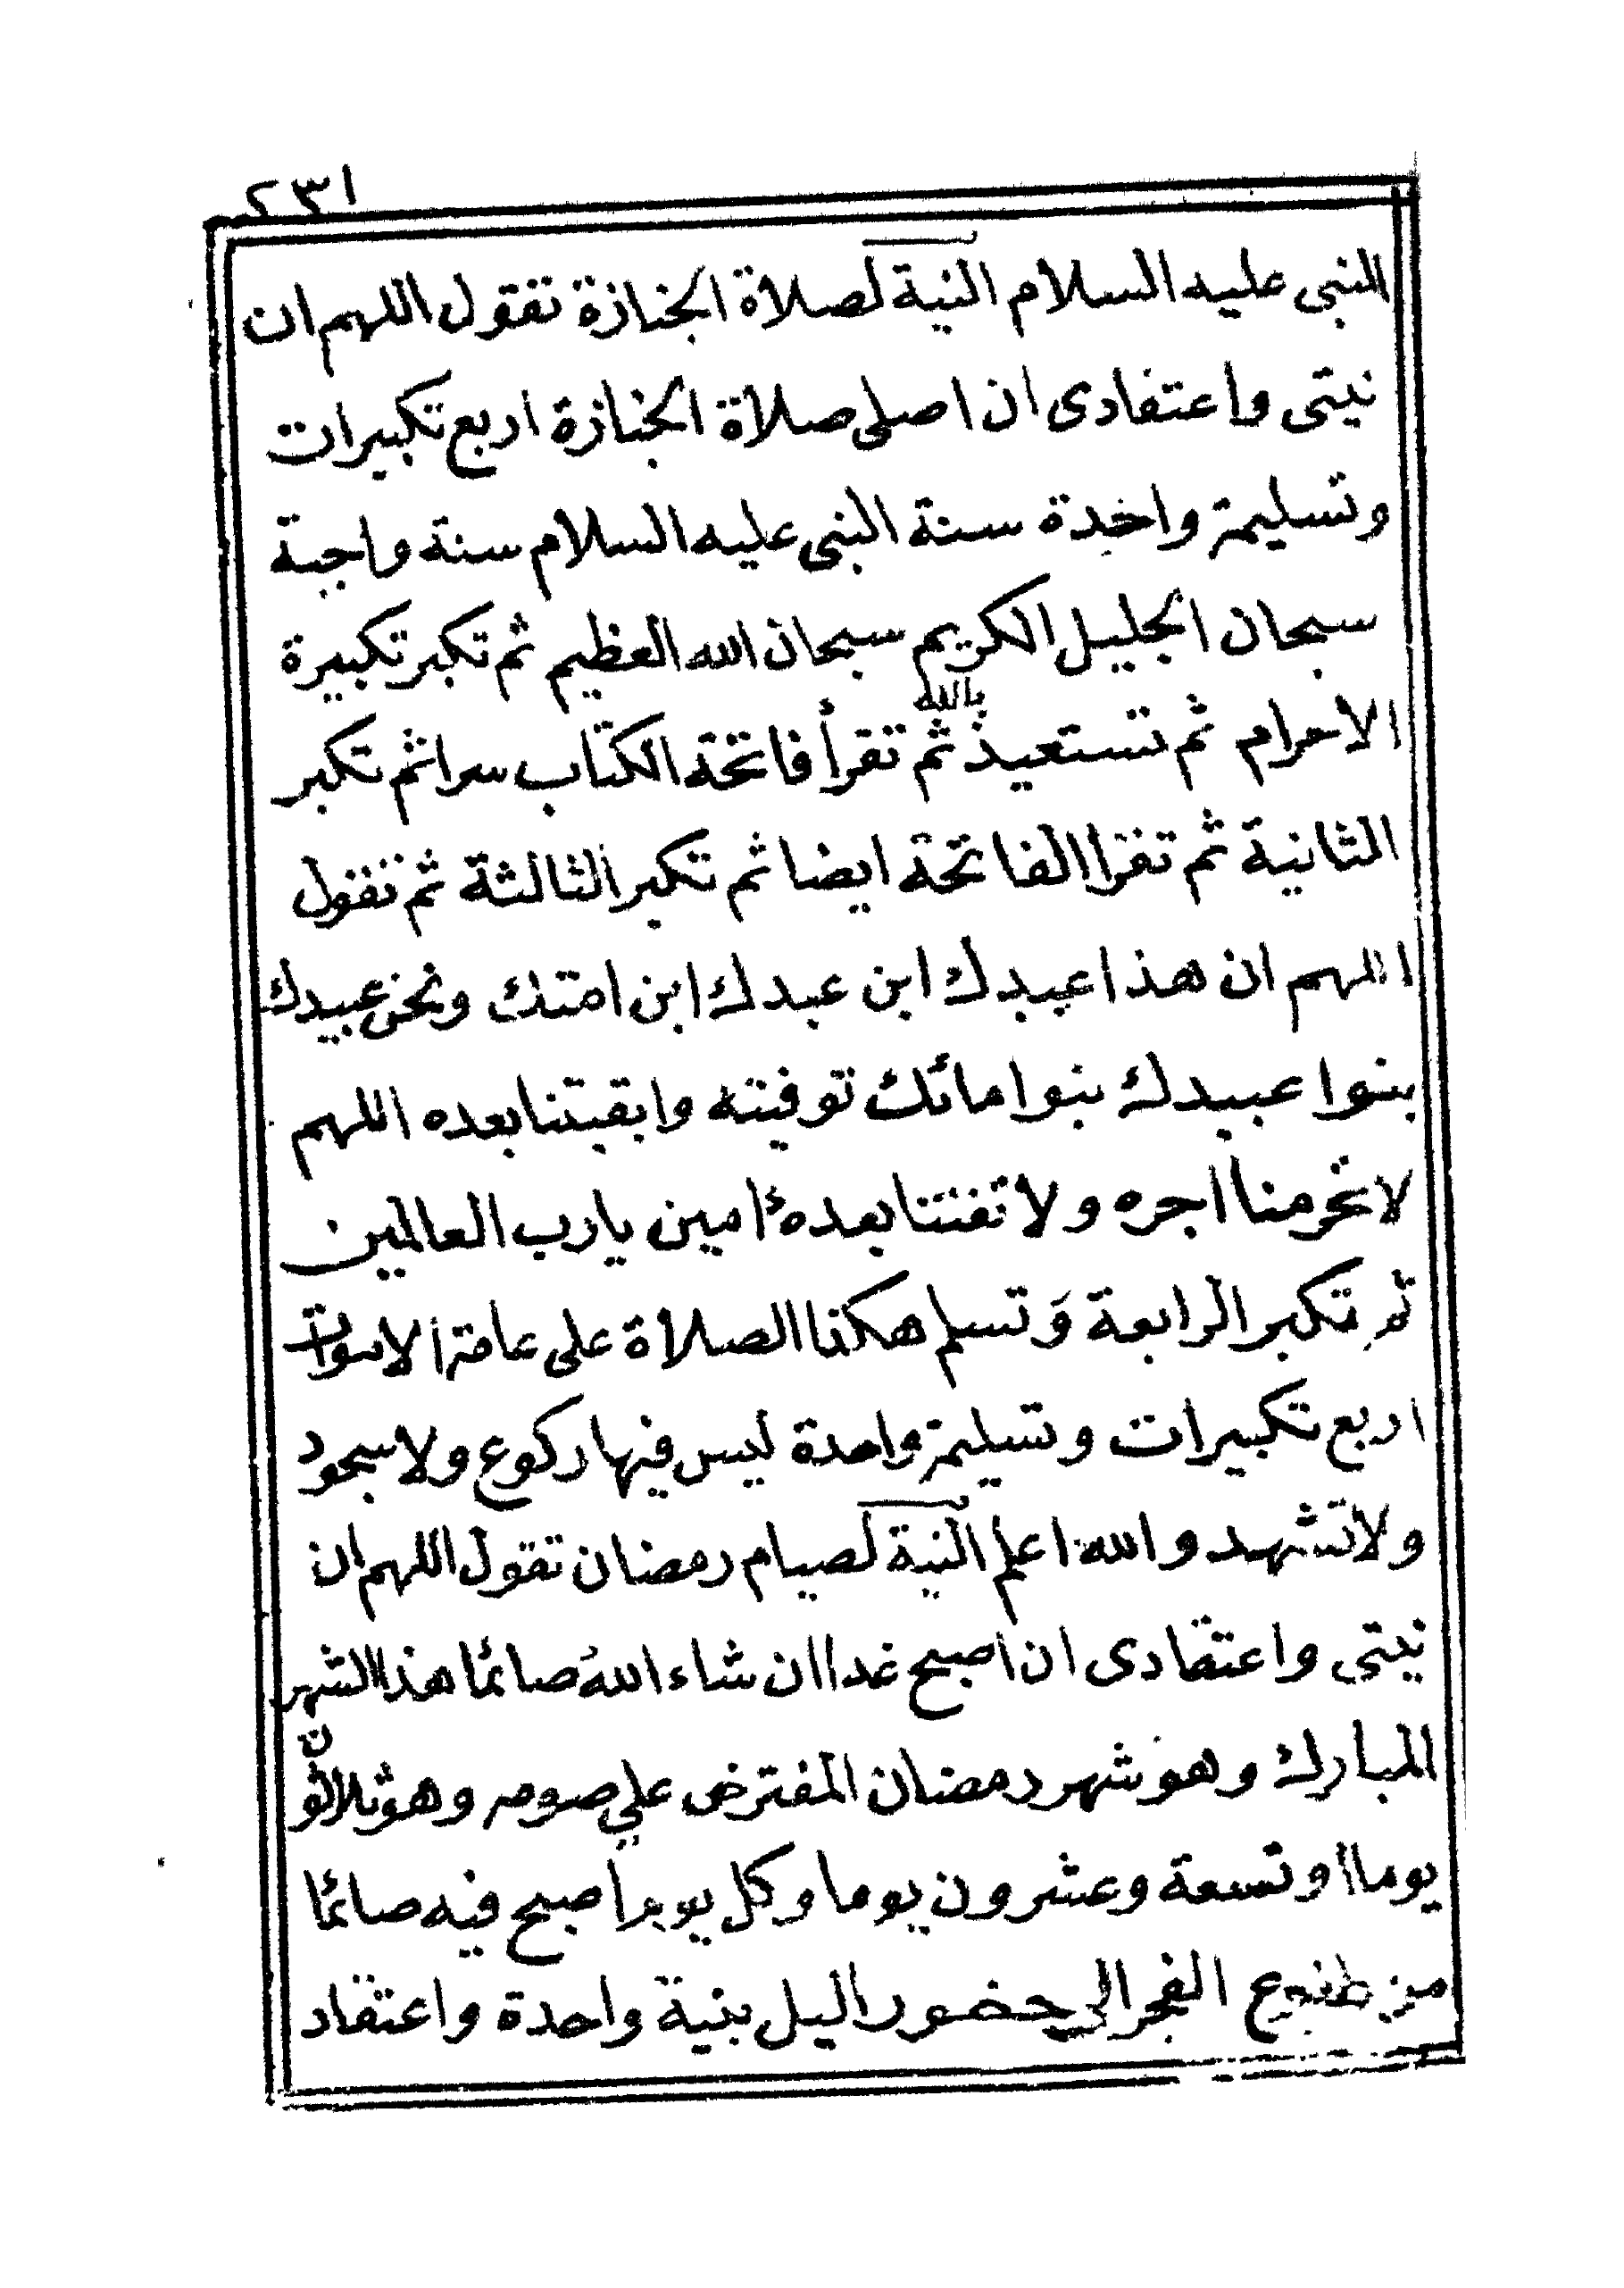 ٢٣١
النبى عليه السلام النية لصلاة الجنازة تقول اللهم ان
نيتى واعتقادى ان اصلى صلاة الجنازة اربع تكبيرات
وتسليمة واحدة سنة النبى عليه السلام سنة واجبة
سبحان الجليل الكريم سبحان الله العظيم ثم تكبر تكبيرة
بالله
الاحرام ثم تستعيذ ثم تقرأ فاتحة الكتاب سرا ثم تكبر
الثانية ثم تقرا الفاتحة ايضا ثم تكبر الثالثة ثم تقول
اللهم ان هذا عبدك ابن عبدك ابن امتك ونحن عبيدك
بنوا عبيدك بنوا امائك توفيته وابقيتنا بعده اللهم
لا تحرمنا اجره ولا تفتنا بعده امين يارب العالمين
ثم تكبر الرابعة وتسلم هكذا الصلاة على عامة الاموات
اربع تكبيرات وتسليمة واحدة ليس فيها ركوع ولا سجود
ولا تشهد والله اعلم النية لصيام رمضان تقول اللهم ان
نيتى واعتقادى ان اصبح غدا ان شاء الله صائما هذا الشهر
المبارك وهو شهر رمضان المفترض علي صومه وهو ثلاثون
يوما او تسعة وعشرون يوما وكل يوم اصبح فيه صائما
من طلوع الفجر الى حضور اليل بنية واحدة واعتقاد